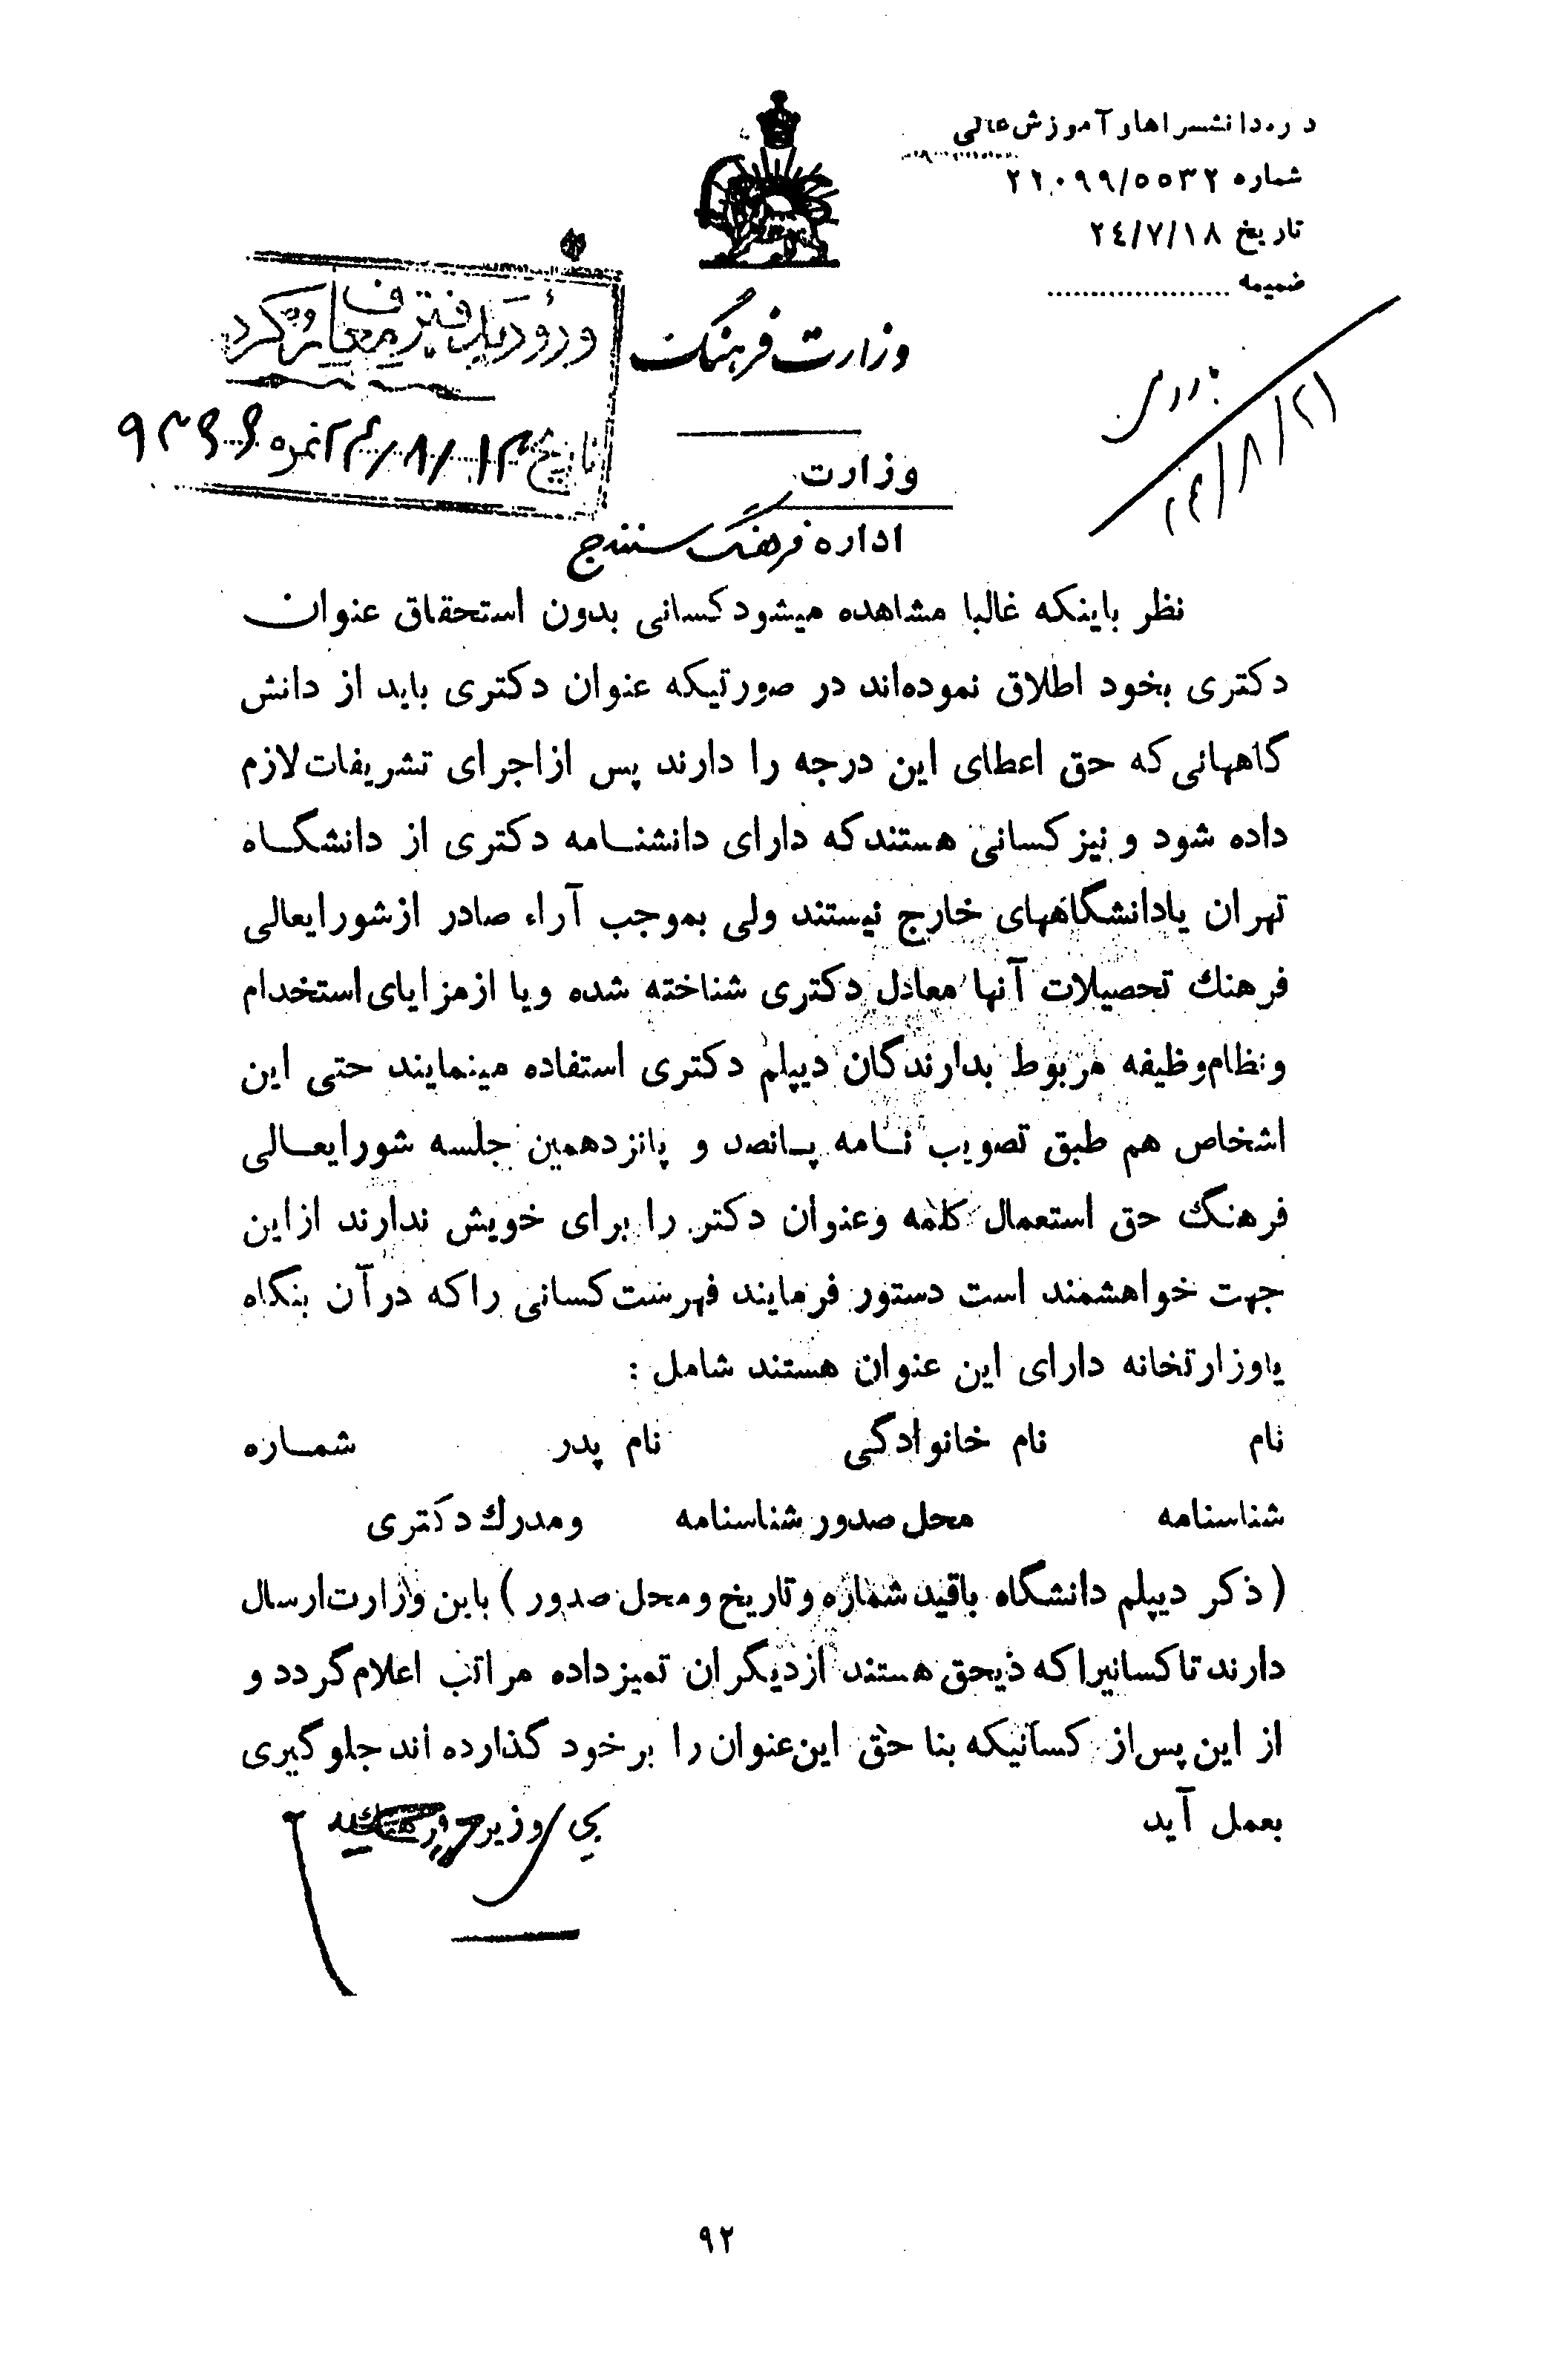 دانشسراها و آموزش عالی
شماره ۲۲۰۹۹/۵۵۳۲
تاریخ ۲٤/۷/۱۸
ضمیمه ....................
ورود بدفتر معارف کردستان
تاریخ ۱۳/۸/۲۴ نمره ۹۳۶۶
وزارت فرهنگ
۲۴/۸/۲۱
وزارت
اداره فرهنگ سنندج
نظر باینکه غالبا مشاهده میشود کسانی بدون استحقاق عنوان
دکتری بخود اطلاق نموده‌اند در صورتیکه عنوان دکتری باید از دانش
گاههائی که حق اعطای این درجه را دارند پس از اجرای تشریفات لازم
داده شود و نیز کسانی هستند که دارای دانشنامه دکتری از دانشگاه
تهران یا دانشگاههای خارج نیستند ولی بموجب آراء صادر از شورایعالی
فرهنك تحصیلات آنها معادل دکتری شناخته شده و یا از مزایای استخدام
و نظام وظیفه مربوط بدارندگان دیپلم دکتری استفاده مینمایند حتی این
اشخاص هم طبق تصویب نامه پانصد و پانزدهمین جلسه شورایعالی
فرهنگ حق استعمال کلمه و عنوان دکتر را برای خویش ندارند از این
جهت خواهشمند است دستور فرمایند فهرست کسانی را که در آن بنگاه
یا وزارتخانه دارای این عنوان هستند شامل :
نام نام خانوادگی نام پدر شماره
شناسنامه محل صدور شناسنامه و مدرك دکتری
( ذکر دیپلم دانشگاه باقید شماره و تاریخ و محل صدور ) باین وزارت ارسال
دارند تا کسانیرا که ذیحق هستند از دیگران تمیز داده مراتب اعلام گردد و
از این پس از کسانیکه بنا حق این عنوان را بر خود گذارده اند جلوگیری
بعمل آید
وزیر فرهنگ
۹۲